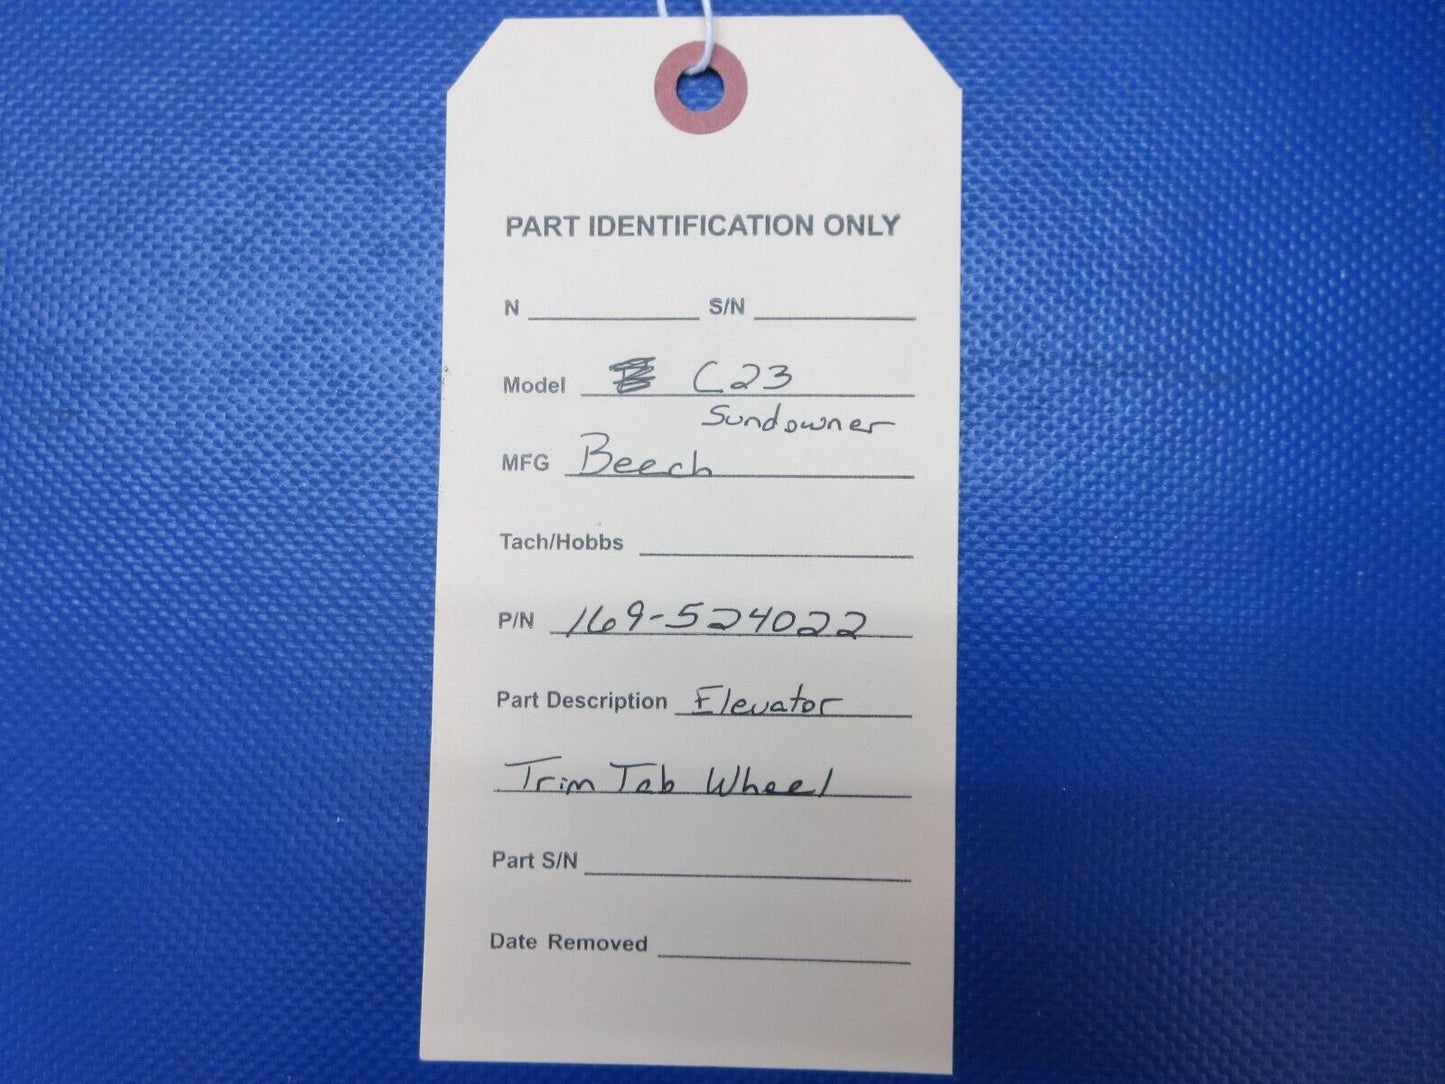 PART IDENTIFICATION ONLY
N S/N
Model C23
Sundowner
MFG Beech
Tach/Hobbs
P/N 169-524022
Part Description Elevator
Trim Tab Wheel
Part S/N
Date Removed